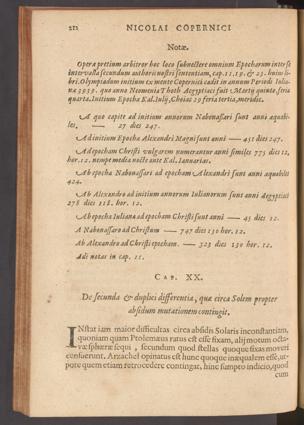 212 NICOLAI COPERNICI
Notæ.
Operæ pretium arbitror hoc loco subnectere omnium Epocharum inter se
intervalla secundum authoris nostri sententiam, cap. 11. 19. & 23. huius li-
bri. Olympiadum initium ex mente Copernici cadit in annum Periodi Iulia-
na 3939. qua anno Neomenia Thoth Ægyptiaci fuit Martij quinto feria
quarta. Initium Epocha Kal. Iulij. Choiac 29 feria tertia, meridie.
A quo capite ad initium annorum Nabonassari sunt anni æquabi-
les. — 27 dies 247.
Ad initium Epocha Alexandri Magni sunt anni — 451 dies 247.
Ad epocham Christi vulgarem numerantur anni similes 775 dies 12,
hor. 12. nempe media nocte ante Kal. Ianuarias.
Ab epocha Nabonassari ad epocham Alexandri sunt anni æquabiles
424.
Ab Alexandro ad initium annorum Iulianorum sunt anni Ægyptiaci
278 dies 118. hor. 12.
Ab epocha Iuliana ad epocham Christi sunt anni — 45 dies 12.
A Nabonassaro ad Christum — 747 dies 130 hor. 12.
Ab Alexandro ad Christi epocham. — 323 dies 130 hor. 12.
Adi notas in cap. 11.
CAP. XX.
De secunda & duplici differentia, quæ circa Solem propter
absidum mutationem contingit.
INstat iam maior difficultas circa absidis Solaris inconstantiam,
quoniam quam Ptolemæus ratus est esse fixam, alij motum octa-
væ sphæræ sequi, secundum quod stellas quoque fixas moveri
censuerunt. Arzachel opinatus est hunc quoque inæqualem esse, ut-
pote quem etiam retrocedere contingat, hinc sumpto indicio, quod
cum